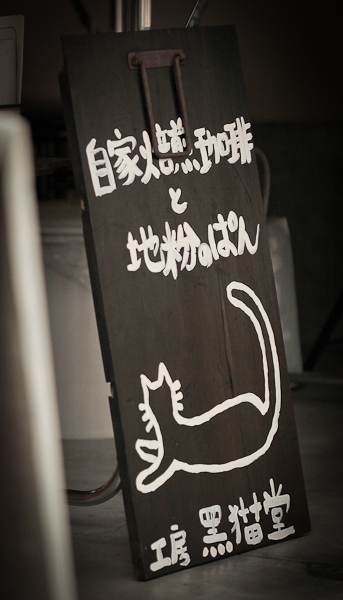 自家焙煎珈琲
と
地粉のぱん
工房 黒猫堂